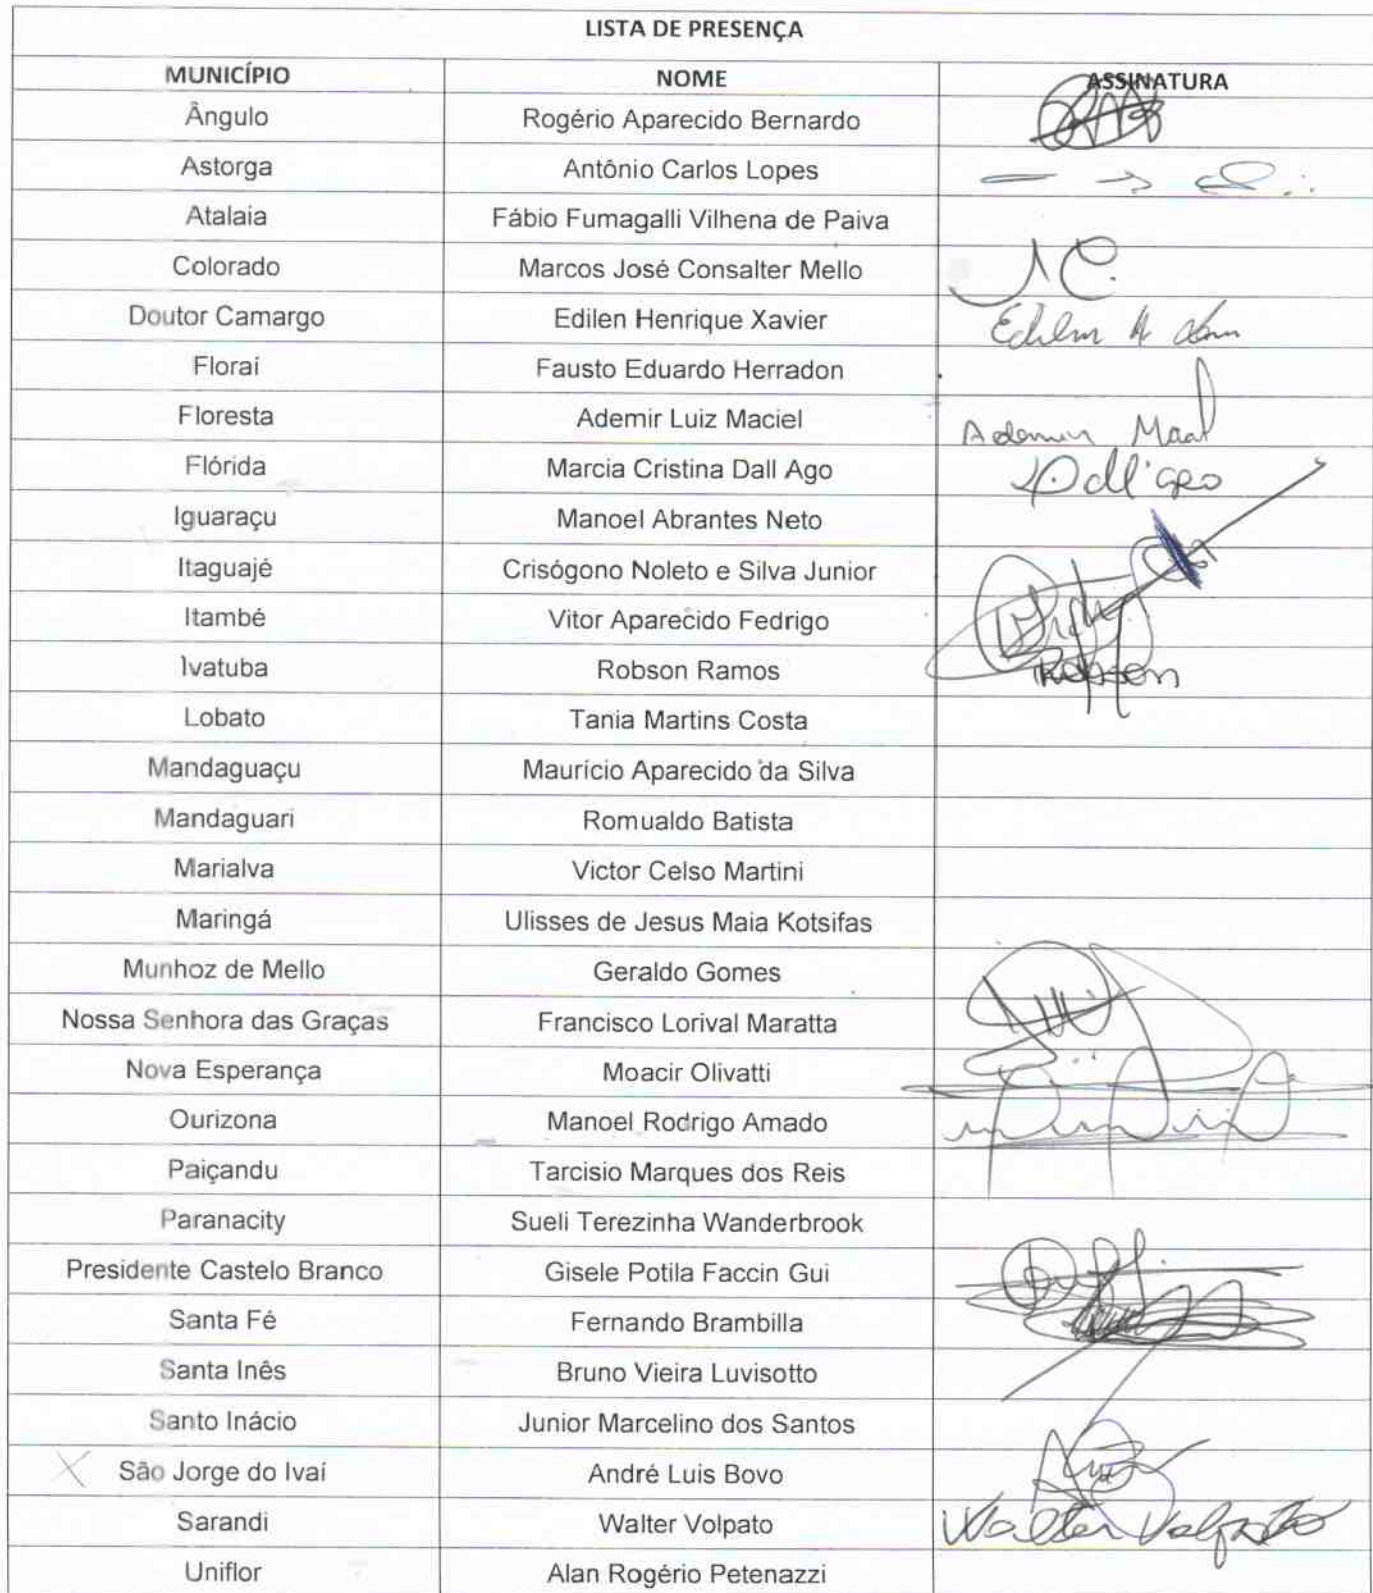 LISTA DE PRESENÇA
MUNICÍPIO NOME ASSINATURA
Ângulo Rogério Aparecido Bernardo
Astorga Antônio Carlos Lopes
Atalaia Fábio Fumagalli Vilhena de Paiva
Colorado Marcos José Consalter Mello
Doutor Camargo Edilen Henrique Xavier
Floraí Fausto Eduardo Herradon
Floresta Ademir Luiz Maciel Ademir
Flórida Marcia Cristina Dall Ago Dall'ago
Iguaraçu Manoel Abrantes Neto
Itaguajé Crisógono Noleto e Silva Junior
Itambé Vitor Aparecido Fedrigo
Ivatuba Robson Ramos Robson
Lobato Tania Martins Costa
Mandaguaçu Maurício Aparecido da Silva
Mandaguari Romualdo Batista
Marialva Victor Celso Martini
Maringá Ulisses de Jesus Maia Kotsifas
Munhoz de Mello Geraldo Gomes
Nossa Senhora das Graças Francisco Lorival Maratta
Nova Esperança Moacir Olivatti
Ourizona Manoel Rodrigo Amado
Paiçandu Tarcisio Marques dos Reis
Paranacity Sueli Terezinha Wanderbrook
Presidente Castelo Branco Gisele Potila Faccin Gui
Santa Fé Fernando Brambilla
Santa Inês Bruno Vieira Luvisotto
Santo Inácio Junior Marcelino dos Santos
X São Jorge do Ivaí André Luis Bovo
Sarandi Walter Volpato Walter Volpato
Uniflor Alan Rogério Petenazzi